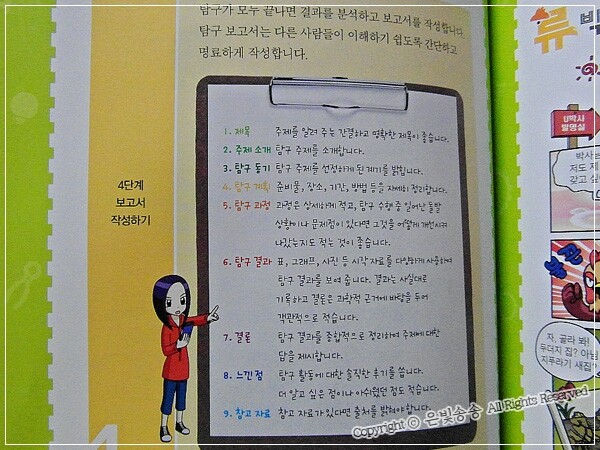 탐구가 모두 끝나면 결과를 분석하고 보고서를 작성합니다.
탐구 보고서는 다른 사람들이 이해하기 쉽도록 간단하고
명료하게 작성합니다.
4단계
보고서
작성하기
1. 제목 주제를 알려 주는 간결하고 명확한 제목이 좋습니다.
2. 주제 소개 탐구 주제를 소개합니다.
3. 탐구 동기 탐구 주제를 선정하게 된 계기를 밝힙니다.
4. 탐구 계획 준비물, 장소, 기간, 방법 등을 자세히 정리합니다.
5. 탐구 과정 과정은 상세하게 적고, 탐구 수행 중 일어난 돌발
상황이나 문제점이 있다면 그것을 어떻게 개선시켜
나갔는지도 적는 것이 좋습니다.
6. 탐구 결과 표, 그래프, 사진 등 시각 자료를 다양하게 사용하여
탐구 결과를 보여 줍니다. 결과는 사실대로
기록하고 결론은 과학적 근거에 바탕을 두어
객관적으로 적습니다.
7. 결론 탐구 결과를 종합적으로 정리하여 주제에 대한
답을 제시합니다.
8. 느낀 점 탐구 활동에 대한 솔직한 후기를 씁니다.
더 알고 싶은 점이나 아쉬웠던 점도 적습니다.
9. 참고 자료 참고 자료가 있다면 출처를 밝혀야합니다.
류 박
U박사
발명실
박사
저도 제
갖고 싶
자, 골라 봐!
두더지 집? 아님
지푸라기 새집
Copyright © 은빛송송 All Rights Reserved